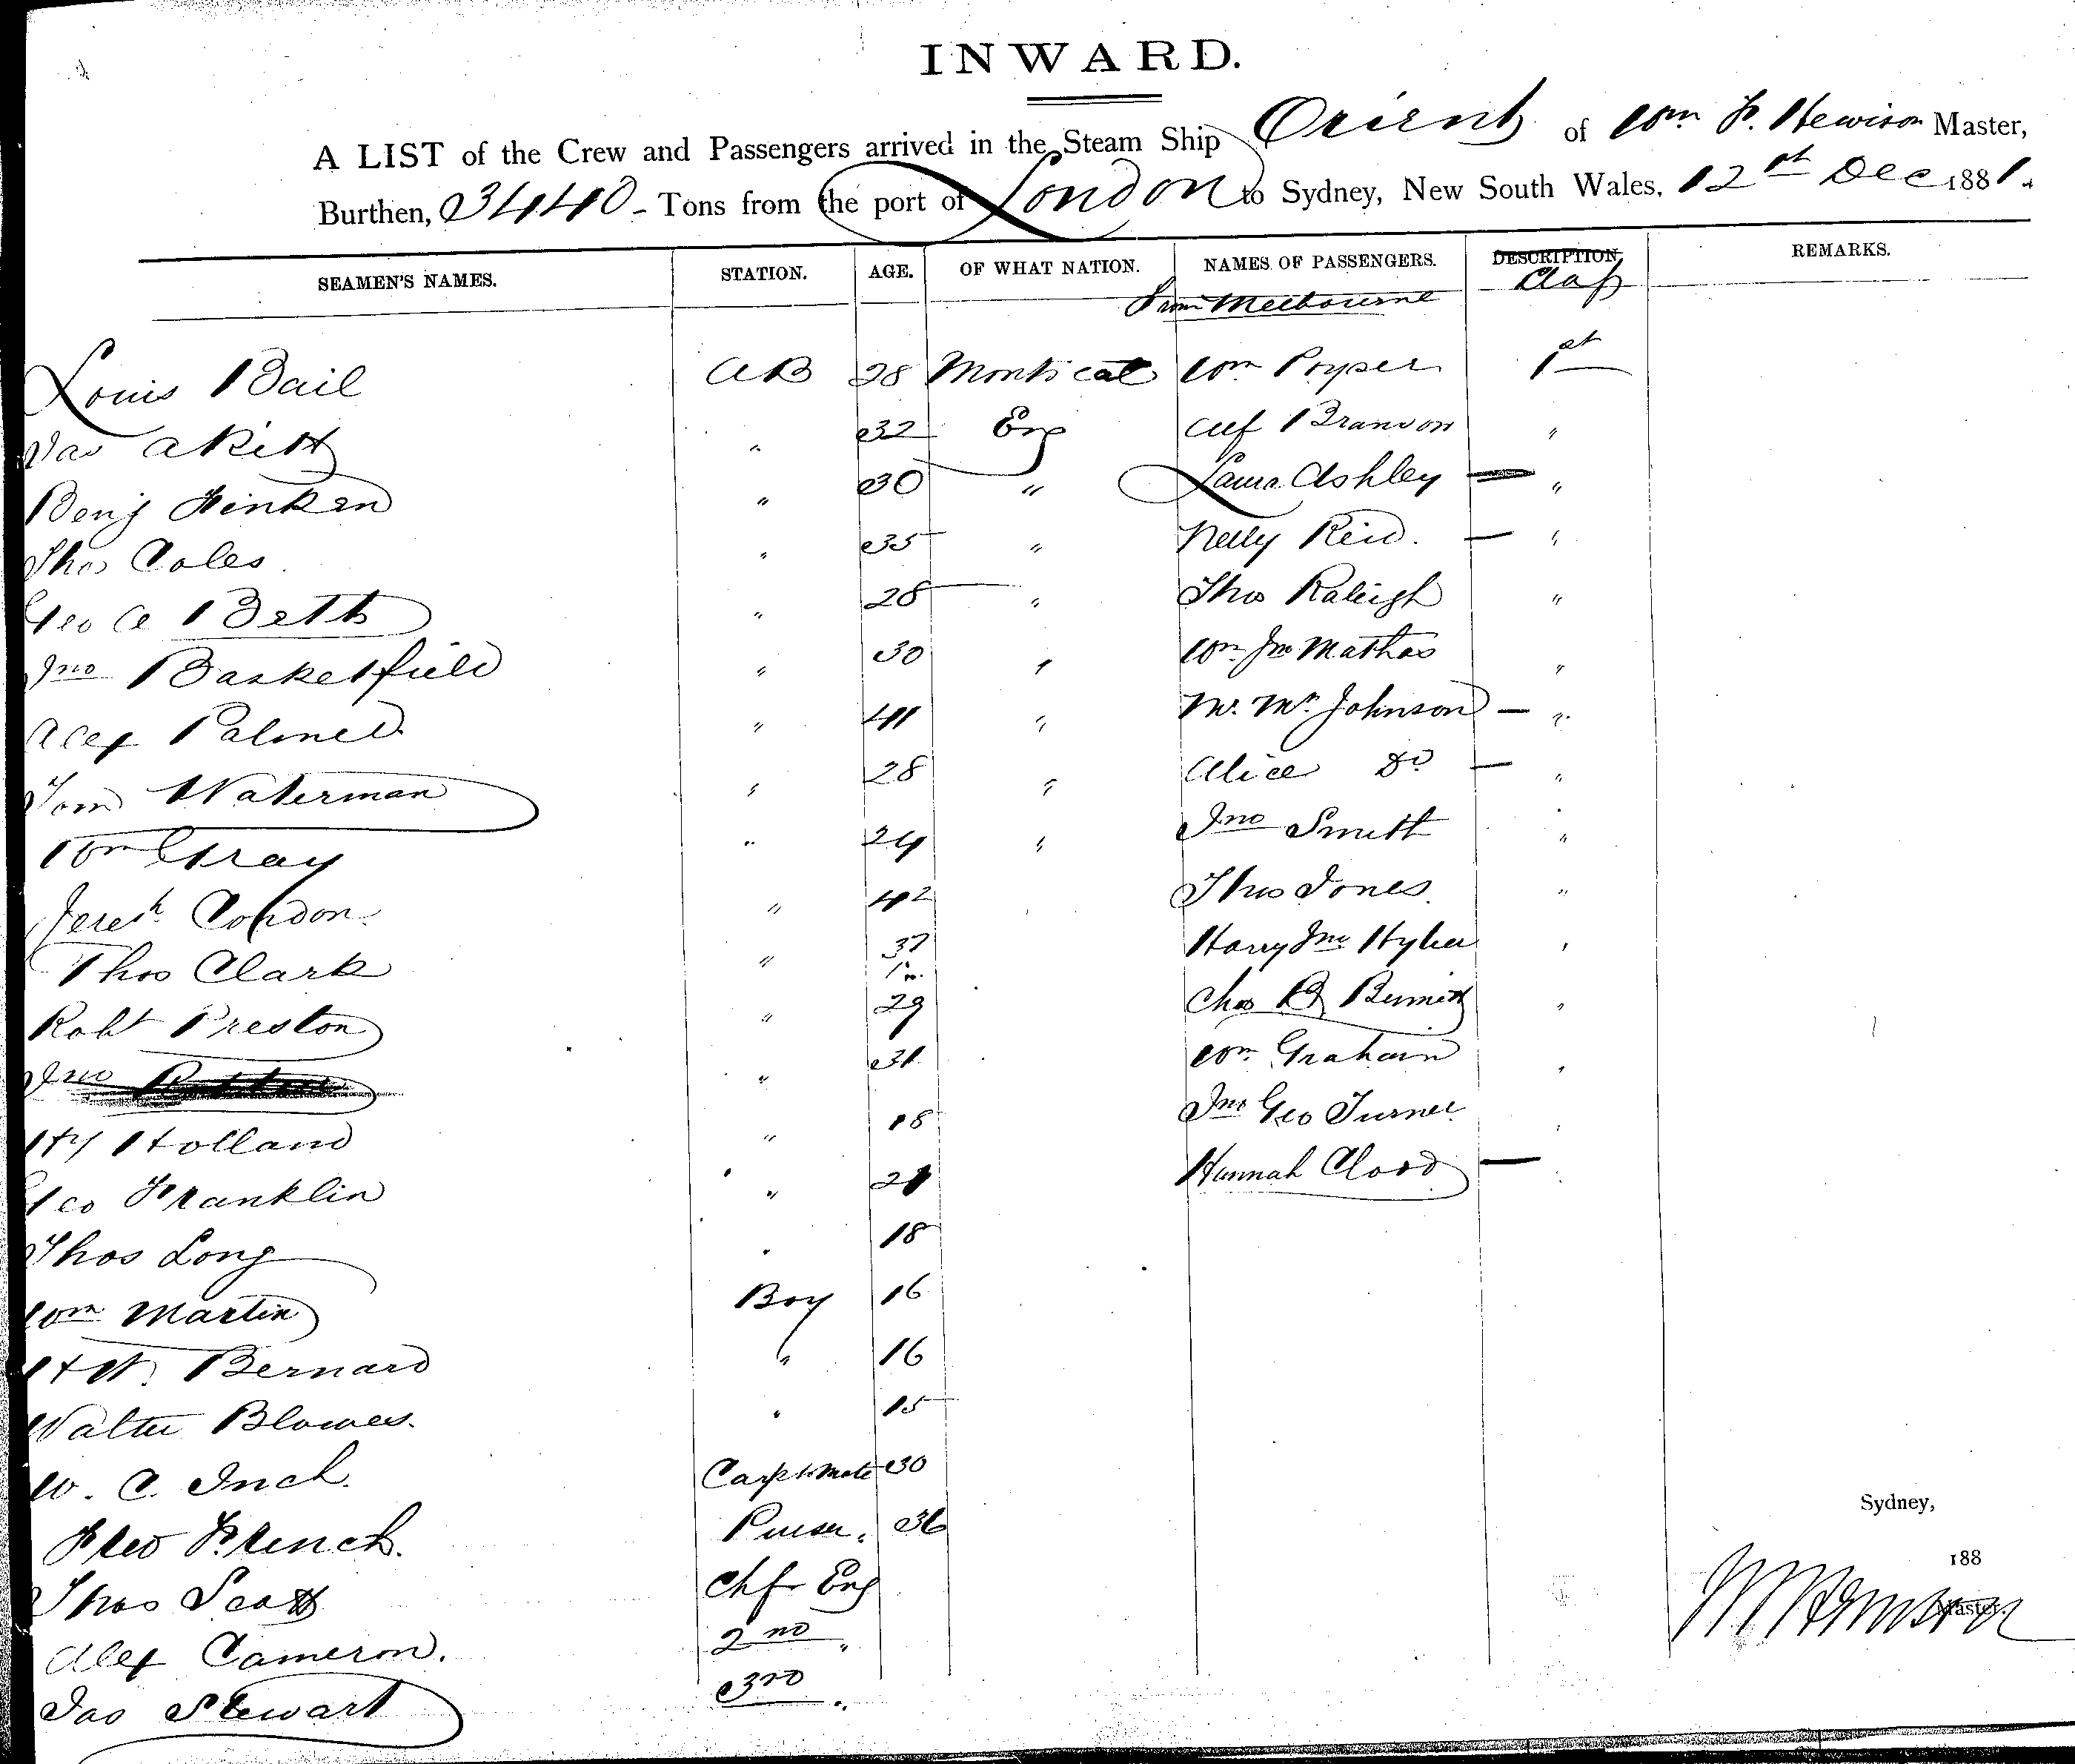 INWARD.
A LIST of the Crew and Passengers arrived in the Steam Ship Orient of Wm F. Hewison Master,
Burthen, 3440 - Tons from the port of London to Sydney, New South Wales, 12th Dec 1881.
SEAMEN'S NAMES. STATION. AGE. OF WHAT NATION. NAMES OF PASSENGERS. DESCRIPTION Class REMARKS.
From Melbourne
Louis Bail AB 28 Wm Pryper 1st
Jas Akitt " 32 Eng Alf Branson "
Benj Hinken " 30 " Laura Ashley — "
Thos Coles " 35 " Nelly Reid. — "
Geo A Betts " 28 " Thos Raleigh "
Jno Basketfield " 30 " Wm Jno Mathas "
Alex Palmer " 41 " Mr. Johnson — "
Tom Waterman " 28 " Alice Do — "
Wm Gray " 24 " Jno Smith "
Jereh Condon. " 42 Thos Jones. "
Thos Clark " 37 Harry Jno "
Robt Preston " 29 Chas B "
Jno " 31 Wm Graham "
Hy Holland " 18 Jno Geo Turner "
Geo Franklin " 21 Hannah Clood —
Thos Long " 18
Wm Martin Boy 16
H W. Bernard " 16
Walter Blowes. " 15
W. C. Inch. Carptr Mate 30
Fred French. Purser. 36
Thos Scott Chf Eng
Alex Cameron. 2nd "
Jas Stewart 3rd "
Sydney,
188
Master.